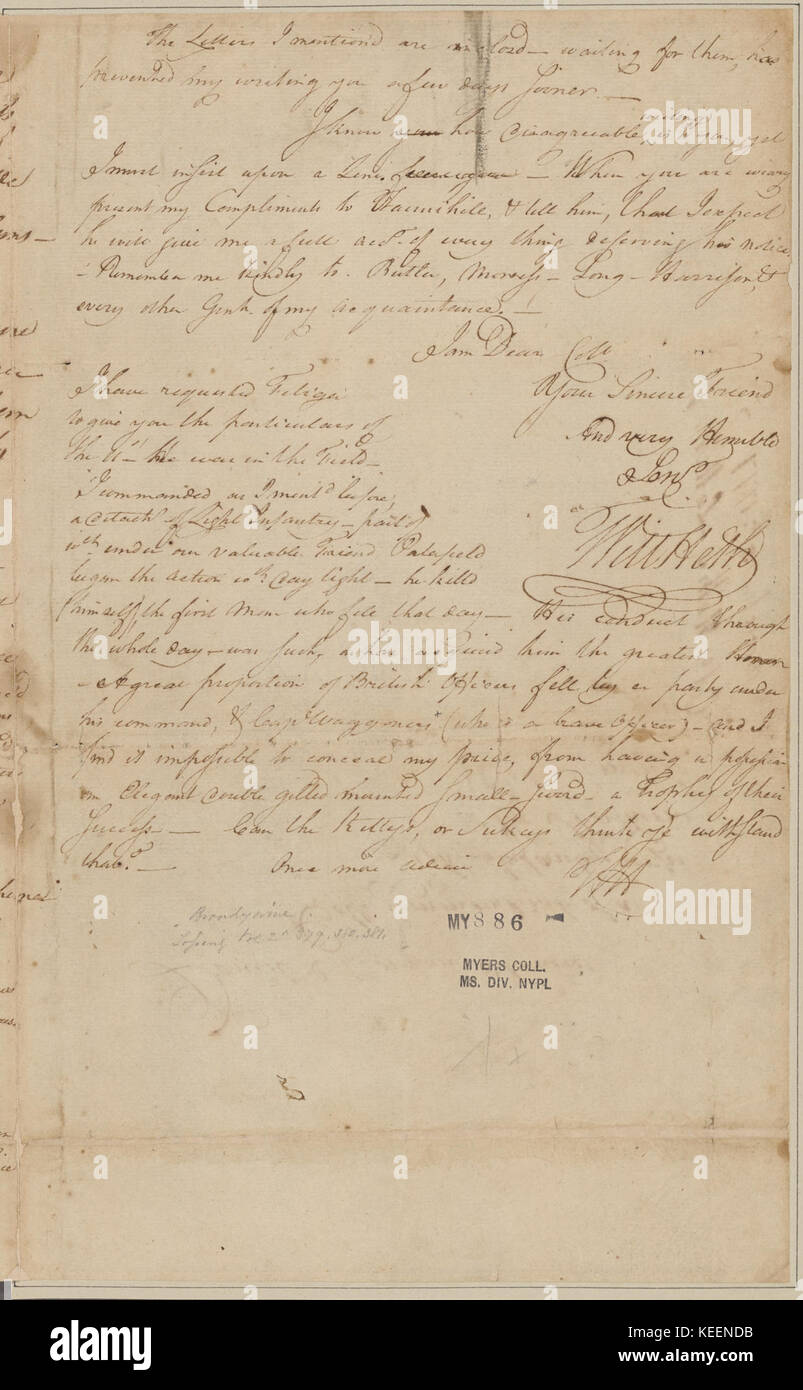 The Letters I mention'd are inclos'd — waiting for them, has
prevented my writing you a few days sooner. —
I know you how disagreeable writing is to you, yet
I must insist upon a Line — When you are
present my Compliments to Hannibill, & tell him, that I expect
he will give me a full acct. of every thing deserving his notice
— Remember me kindly to Butler, Morress — Long — Harrison, &
every other Gent. of my acquaintance. —
I am Dear Coll
Your Sincere Friend
And very Humble
Serv.
Will Heth
I have requested Febiger
to give you the particulars of
the 11th he was in the Field —
I commanded as I ment'd before,
a detach't of Light Infantry — part of
wch. under our valuable Friend Porterfield
began the action wth. day light — he kill'd
(himself) the first Man who fell that day — His conduct through
the whole day — was such, as has acquired him the greatest Honour
— A great proportion of British Officers fell by a party under
his command, & Capt. Waggoners (who is a brave Officer) — and I
find it impossible to conceal my pride, from having in possession
an Elegant double gilted mounted Small-Sword — a Trophy of their
Success — Can the Kittys, or Sukeys think of withstand
that? — Once more adieu
WH
Brandywine
Lossing Vol 2d 379.
MY 886
MYERS COLL.
MS. DIV. NYPL
alamy
Image ID: KEENDB
www.alamy.com